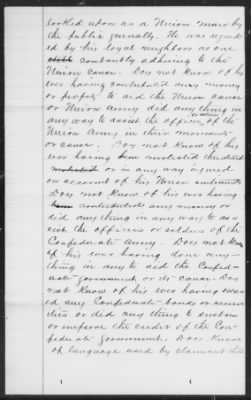 looked upon as a Union man by
the public generally. He was regard
ed by his loyal neighbors as one
constantly adhering to the
Union cause. Does not know of his
ever having contributed any money
or property to aid the Union cause
or Union Army did any thing in
any way to assist the officers or soldiers of the
Union Army in their movements
or cause. Does not know of his
ever having been molested threatened
molested or in any way injured
on account of his Union sentiments
Does not know of his ever having
been contributed any money or
did any thing in any way to as-
sist the officers or soldiers of the
Confederate Army. Does not know
of his ever having done any-
thing in any to aid the Confed-
erate government or its cause. Does
not know of his ever having own-
ed any Confederate bonds or secur
ities or did any thing to sustain
or improve the credit of the Con-
federate government. Does know
of language used by claimant